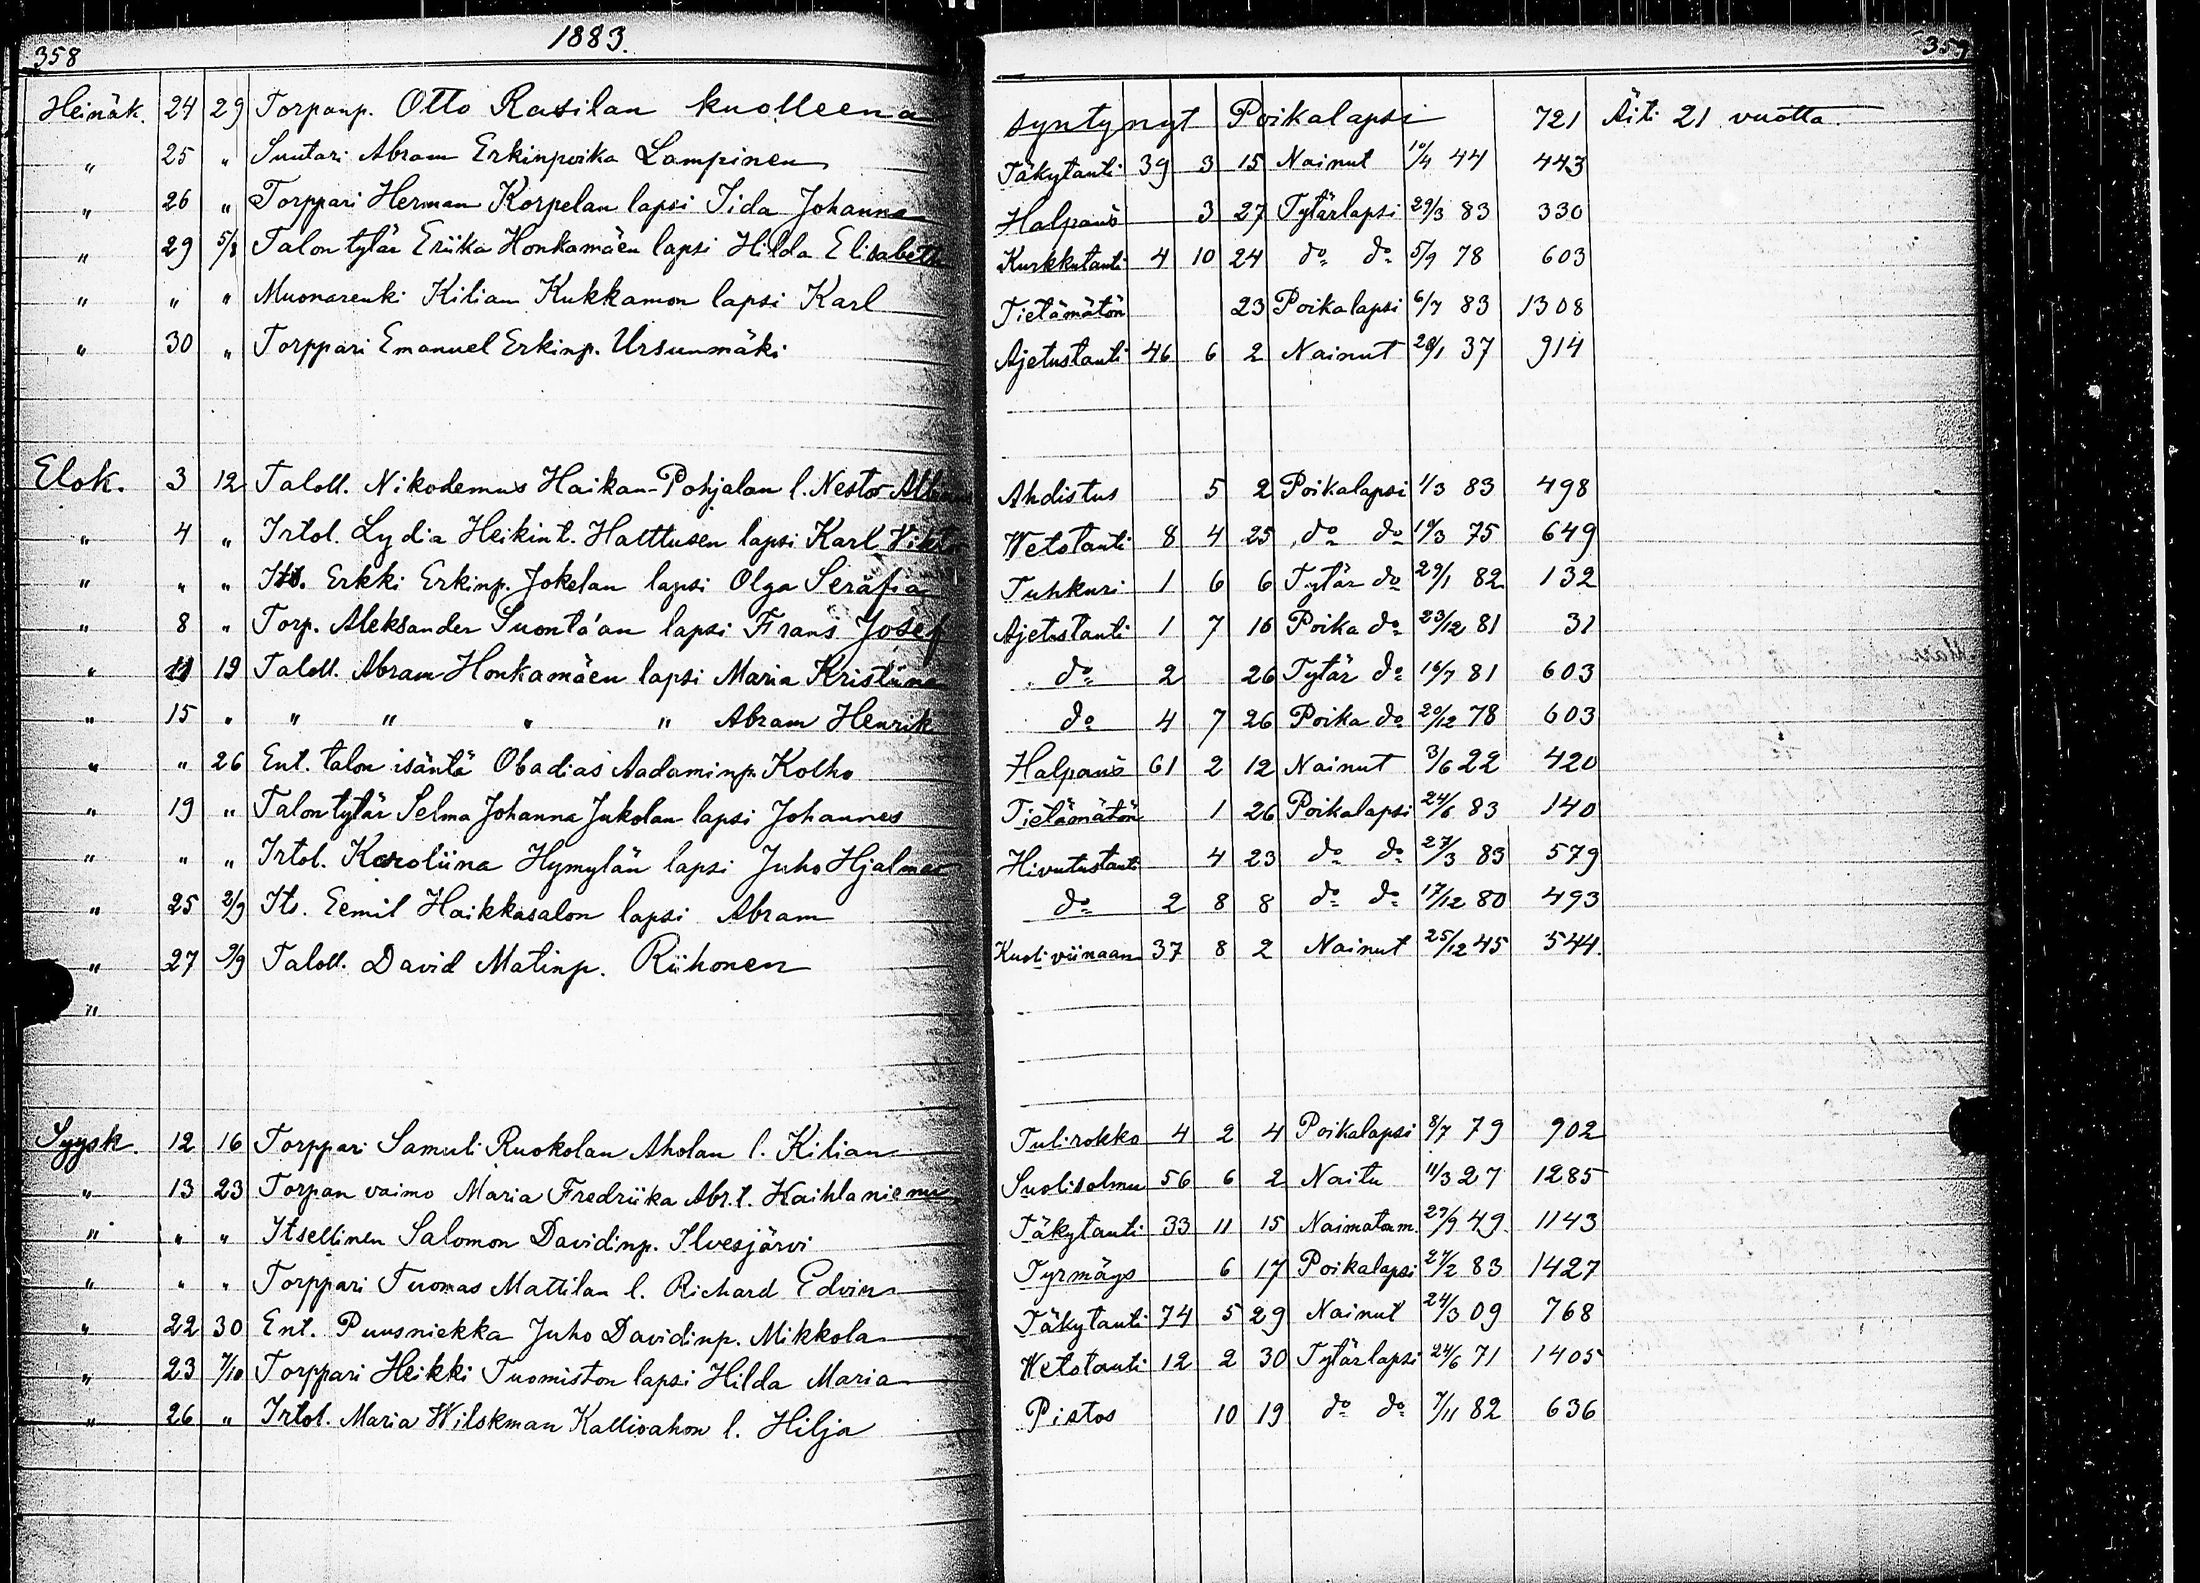 358 1883. 359
Heinäk. 24 29 Torpanp. Otto Rasilan kuolleena syntynyt Poikalapsi 721 Äiti 21 vuotta
" 25 " Suutari Abram Erkinpoika Lampinen Täkytauti 39 3 15 Nainut 10/4 44 443
" 26 " Torppari Herman Korpelan lapsi Iida Johanna Halpaus 3 27 Tytärlapsi 29/3 83 330
" 29 5/8 Talon tytär Eriika Honkamäen lapsi Hilda Elisabeth Kurkkutauti 4 10 24 do do 5/9 78 603
" " " Muonarenki Kilian Kukkamon lapsi Karl Tietämätön 23 Poikalapsi 6/7 83 1308
" 30 " Torppari Emanuel Erkinp. Ursunmäki Ajetustauti 46 6 2 Nainut 28/1 37 914
Elok. 3 12 Taloll. Nikodemus Haikan-Pohjalan l. Nestor Ahdistus 5 2 Poikalapsi 1/3 83 498
" 4 " Irtol. Lydia Heikint. Halttusen lapsi Karl Viktor Wetotauti 8 4 25 do do 10/3 75 649
" " " Its. Erkki Erkinp. Jokelan lapsi Olga Serafia Tuhkuri 1 6 6 Tytär do 29/1 82 132
" 8 " Torp. Aleksander Suontá'an lapsi Frans Josef Ajetustauti 1 7 16 Poika do 23/12 81 31
" 11 19 Taloll. Abram Honkamäen lapsi Maria Kristiina do 2 26 Tytär do 16/7 81 603
" 15 " " " " " Abram Henrik do 4 7 26 Poika do 20/12 78 603
" " 26 Ent. talon isäntä Obadias Aadaminp. Kolho Halpaus 61 2 12 Nainut 3/6 22 420
" 19 " Talon tytär Selma Johanna Jukolan lapsi Johannes Tietämätön 1 26 Poikalapsi 24/6 83 140
" " " Irtol. Karoliina Hymylän lapsi Juho Hjalmar Hivutustauti 4 23 do do 27/3 83 579
" 25 2/9 Its. Eemil Haikkasalon lapsi Abram do 2 8 8 do do 17/12 80 493
" 27 9/9 Taloll. David Matinp. Riihonen Kuoli viinaan 37 8 2 Nainut 25/12 45 544.
"
Syysk. 12 16 Torppari Samuli Ruokolan Aholan l. Kilian Tulirokko 4 2 4 Poikalapsi 8/7 79 902
" 13 23 Torpan vaimo Maria Fredriika Abr.t. Kaihlaniemi Suolisolmu 56 6 2 Naitu 11/3 27 1285
" " " Itsellinen Salomon Davidinp. Ilvesjärvi Täkytauti 33 11 15 Naimatom. 29/9 49. 1143
" " " Torppari Tuomas Mattilan l. Richard Edvin Tyrmäys 6 17 Poikalapsi 27/2 83 1427
" 22 30 Ent. Puusniekka Juho Davidinp. Mikkola Täkytauti 74 5 29 Nainut 24/3 09 768
" 23 7/10 Torppari Heikki Tuomiston lapsi Hilda Maria Wetotauti 12 2 30 Tytärlapsi 24/6 71 1405
" 26 " Irtol. Maria Wilskman Kallioahon l. Hilja Pistos 10 19 do do 7/11 82 636